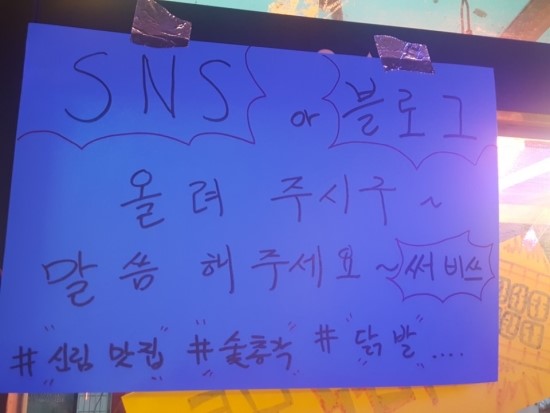 SNS or 블로그
올려 주시구~
말씀 해주세요~ 써비쓰
#"신림 맛집" #"숯총각" #"닭발"....